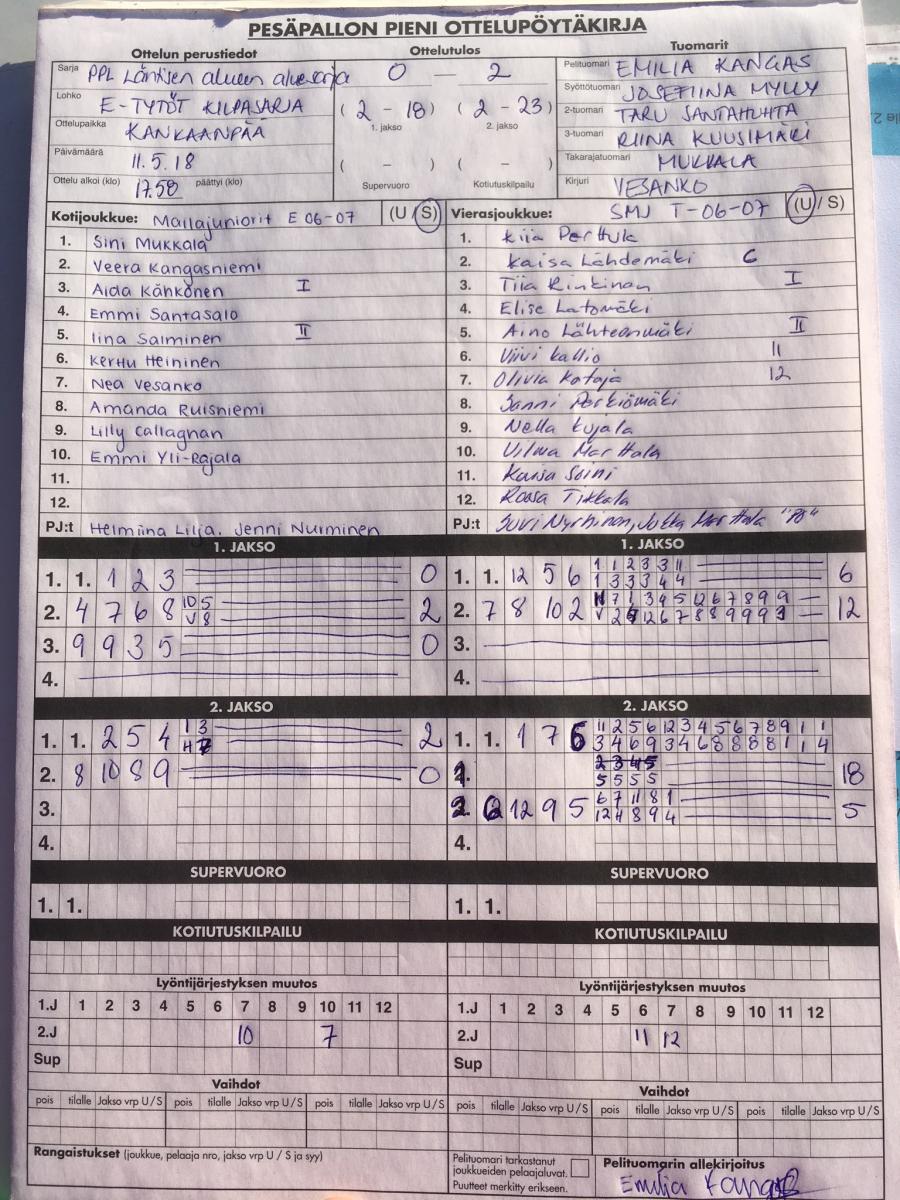 PESÄPALLON PIENI OTTELUPÖYTÄKIRJA
Ottelun perustiedot
Sarja PPL Läntisen alueen aluesarja
Lohko E-TYTÖT KILPASARJA
Ottelupaikka KANKAANPÄÄ
Päivämäärä 11.5.18
Ottelu alkoi (klo) 17.58 päättyi (klo)
Ottelutulos
0 — 2
(2 - 18) (2 - 23)
1. jakso 2. jakso
( - ) ( - )
Supervuoro Kotiutuskilpailu
Tuomarit
Pelituomari EMILIA KANGAS
Syöttötuomari JOSEFIINA MYLLY
2-tuomari TARU SANTAHUHTA
3-tuomari RIINA KUUSIMÄKI
Takarajatuomari MUKKALA
Kirjuri VESANKO
Kotijoukkue: Mailajuniorit E 06-07 (U / S)
1. Sini Mukkala
2. Veera Kangasniemi
3. Aida Känkönen I
4. Emmi Santasalo
5. Iina Salminen II
6. Kerttu Heininen
7. Nea Vesanko
8. Amanda Ruisniemi
9. Lilly Callagnan
10. Emmi Yli-Rajala
11.
12.
PJ:t Helmiina Lilja, Jenni Nurminen
Vierasjoukkue: SMJ T-06-07 (U / S)
1. Kiia Perttula
2. Kaisa Lähdemäki C
3. Tiia Rinkinen I
4. Elise Latomäki
5. Aino Lähteenmäki II
6. Viivi Kallio 11
7. Olivia Kotoja 12
8. Sanni Perkiömäki
9. Nella Kujala
10. Vilma Marttala
11. Kaisa Soini
12. Roosa Tikkala
PJ:t Suvi Nyrhinen, Jukka Marttala
1. JAKSO
1. 1. 1 2 3 0
2. 4 7 6 8 10 5 2
V 8
3. 9 9 3 5 0
4.
1. JAKSO
1. 1. 12 5 6 1 1 2 3 3 11 6
1 3 3 3 4 4
2. 7 8 10 2 12
3.
4.
2. JAKSO
1. 1. 2 5 4 1 3 2
2. 8 10 8 9 0
3.
4.
2. JAKSO
1. 1. 1 7 6 11 2 5 6 12 3 4 5 6 7 8 9 1 1
3 4 6 9 3 4 6 8 8 8 8 1 1 4
2 3 4 5 18
5 5 5 5
2. 6 12 9 5 6 7 11 8 1 5
12 4 8 9 4
4.
SUPERVUORO
1. 1.
SUPERVUORO
1. 1.
KOTIUTUSKILPAILU
KOTIUTUSKILPAILU
Lyöntijärjestyksen muutos
1.J 1 2 3 4 5 6 7 8 9 10 11 12
2.J 10 7
Sup
Lyöntijärjestyksen muutos
1.J 1 2 3 4 5 6 7 8 9 10 11 12
2.J 11 12
Sup
Vaihdot
pois tilalle Jakso vrp U / S pois tilalle Jakso vrp U / S pois tilalle Jakso vrp U / S
Vaihdot
pois tilalle Jakso vrp U / S pois tilalle Jakso vrp U / S pois tilalle Jakso vrp U / S
Rangaistukset (joukkue, pelaaja nro, jakso vrp U / S ja syy)
Pelituomari tarkastanut
joukkueiden pelaajaluvat.
Puutteet merkitty erikseen.
Pelituomarin allekirjoitus
Emilia Kangas